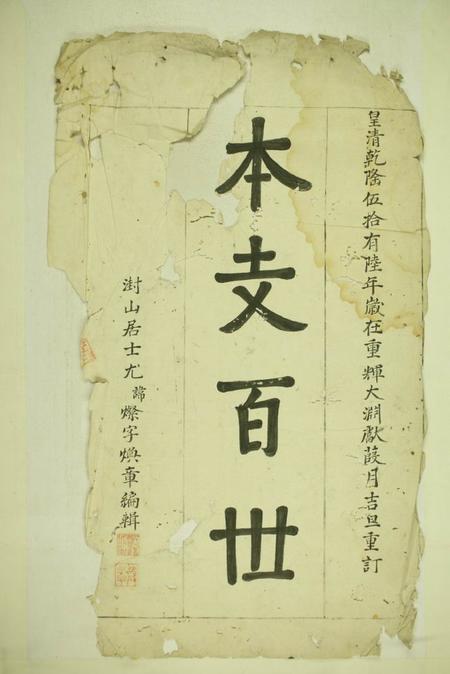 皇清乾隆伍拾有陸年嵗在重輝大淵獻葭月吉旦重訂
本支百世
澍山居士尤諱燦字煥章編輯